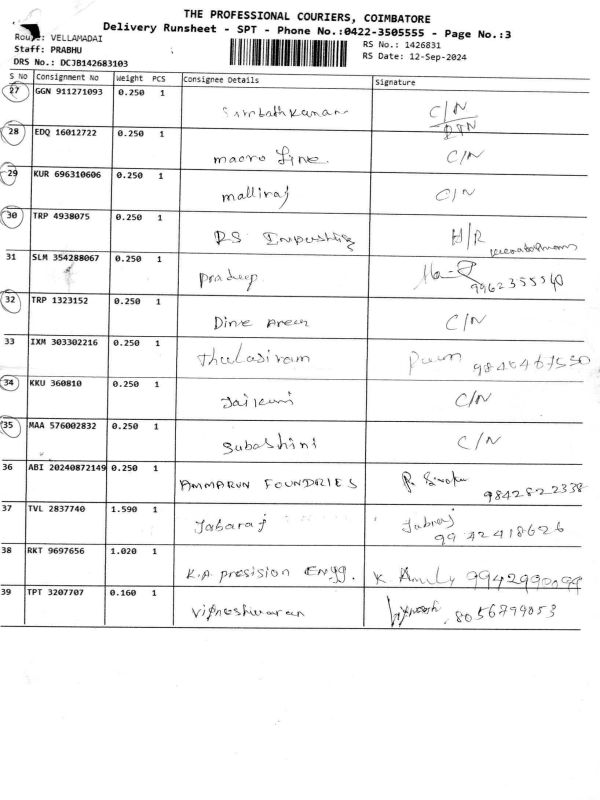 THE PROFESSIONAL COURIERS, COIMBATORE
Delivery Runsheet - SPT - Phone No.:0422-3505555 - Page No.:3
Route: VELLAMADAI
Staff: PRABHU
DRS No.: DCJB142683103
RS No.: 1426831
RS Date: 12-Sep-2024
S No Consignment No Weight PCS Consignee Details Signature
27 GGN 911271093 0.250 1
C/N
28 EDQ 16012722 0.250 1
macro line. C/N
29 KUR 696310606 0.250 1
malliraj C/N
30 TRP 4938075 0.250 1
RS H/R
31 SLM 354288067 0.250 1
pradeep 9962355540
32 TRP 1323152 0.250 1
C/N
33 IXM 303302216 0.250 1
Thulasiram
34 KKU 360810 0.250 1
C/N
35 MAA 576002832 0.250 1
Subashini C/N
36 ABI 20240872149 0.250 1
AMMARUN FOUNDRIES 9842822338
37 TVL 2837740 1.590 1
Jabaraj 9942418626
38 RKT 9697656 1.020 1
K.A presision Engg. K
39 TPT 3207707 0.160 1
Vigneshwaran 8056799053